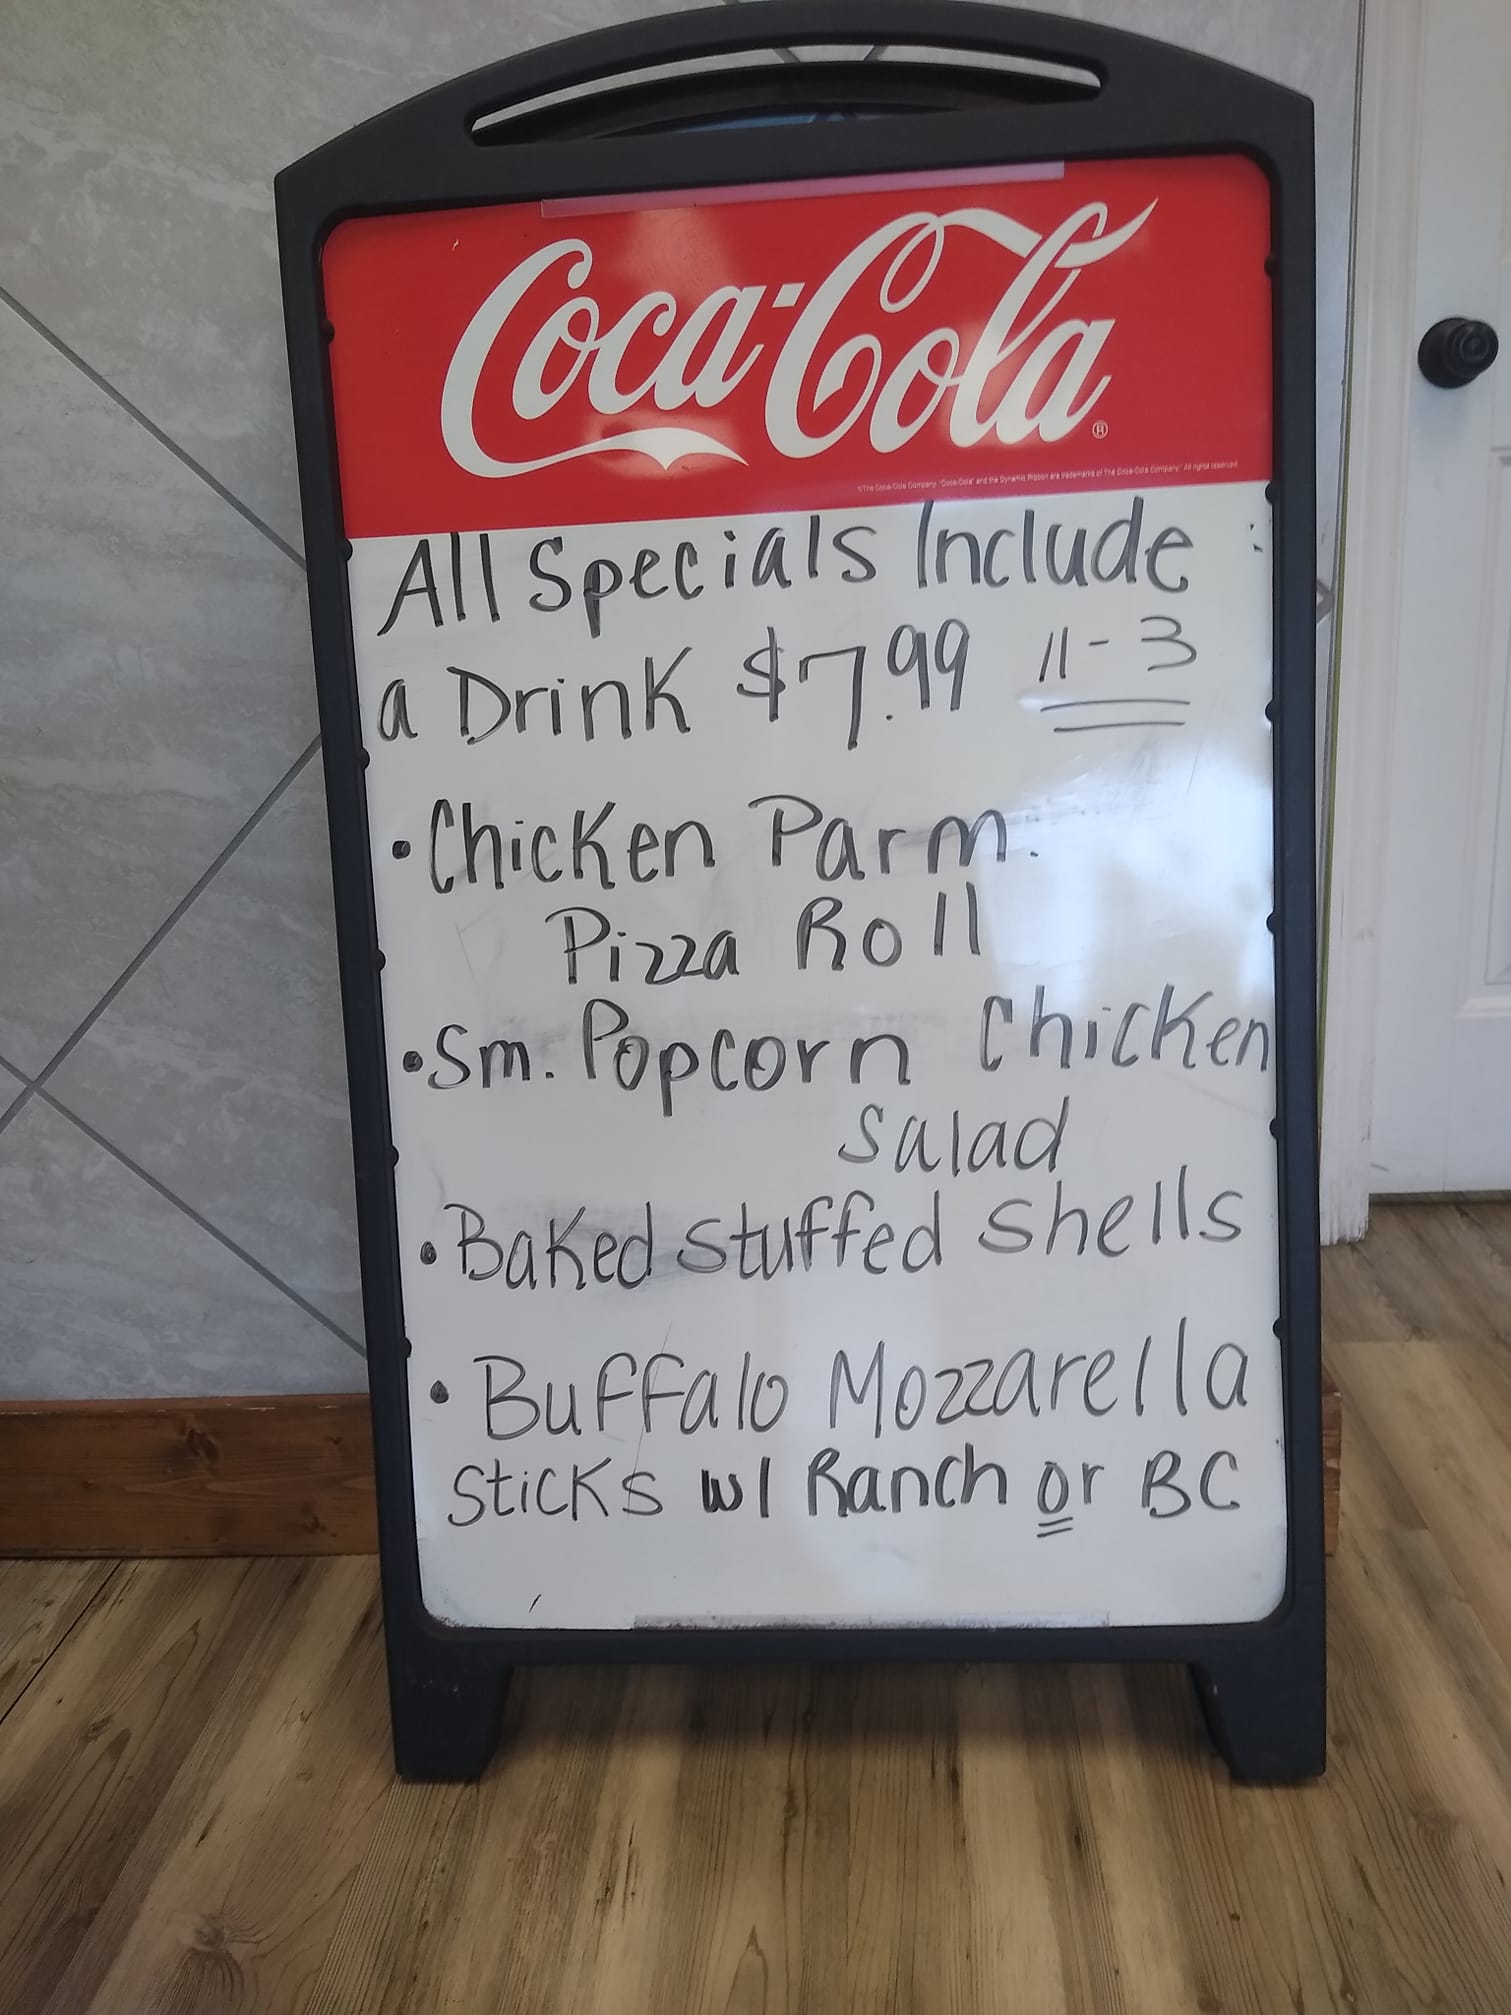 Coca-Cola
®
©The Coca-Cola Company. "Coca-Cola" and the Dynamic Ribbon are trademarks of The Coca-Cola Company. All rights reserved.
All Specials Include
a Drink $7.99 11-3
• Chicken Parm.
Pizza Roll
• Sm. Popcorn Chicken
Salad
• Baked Stuffed Shells
• Buffalo Mozzarella
Sticks w/ Ranch or BC